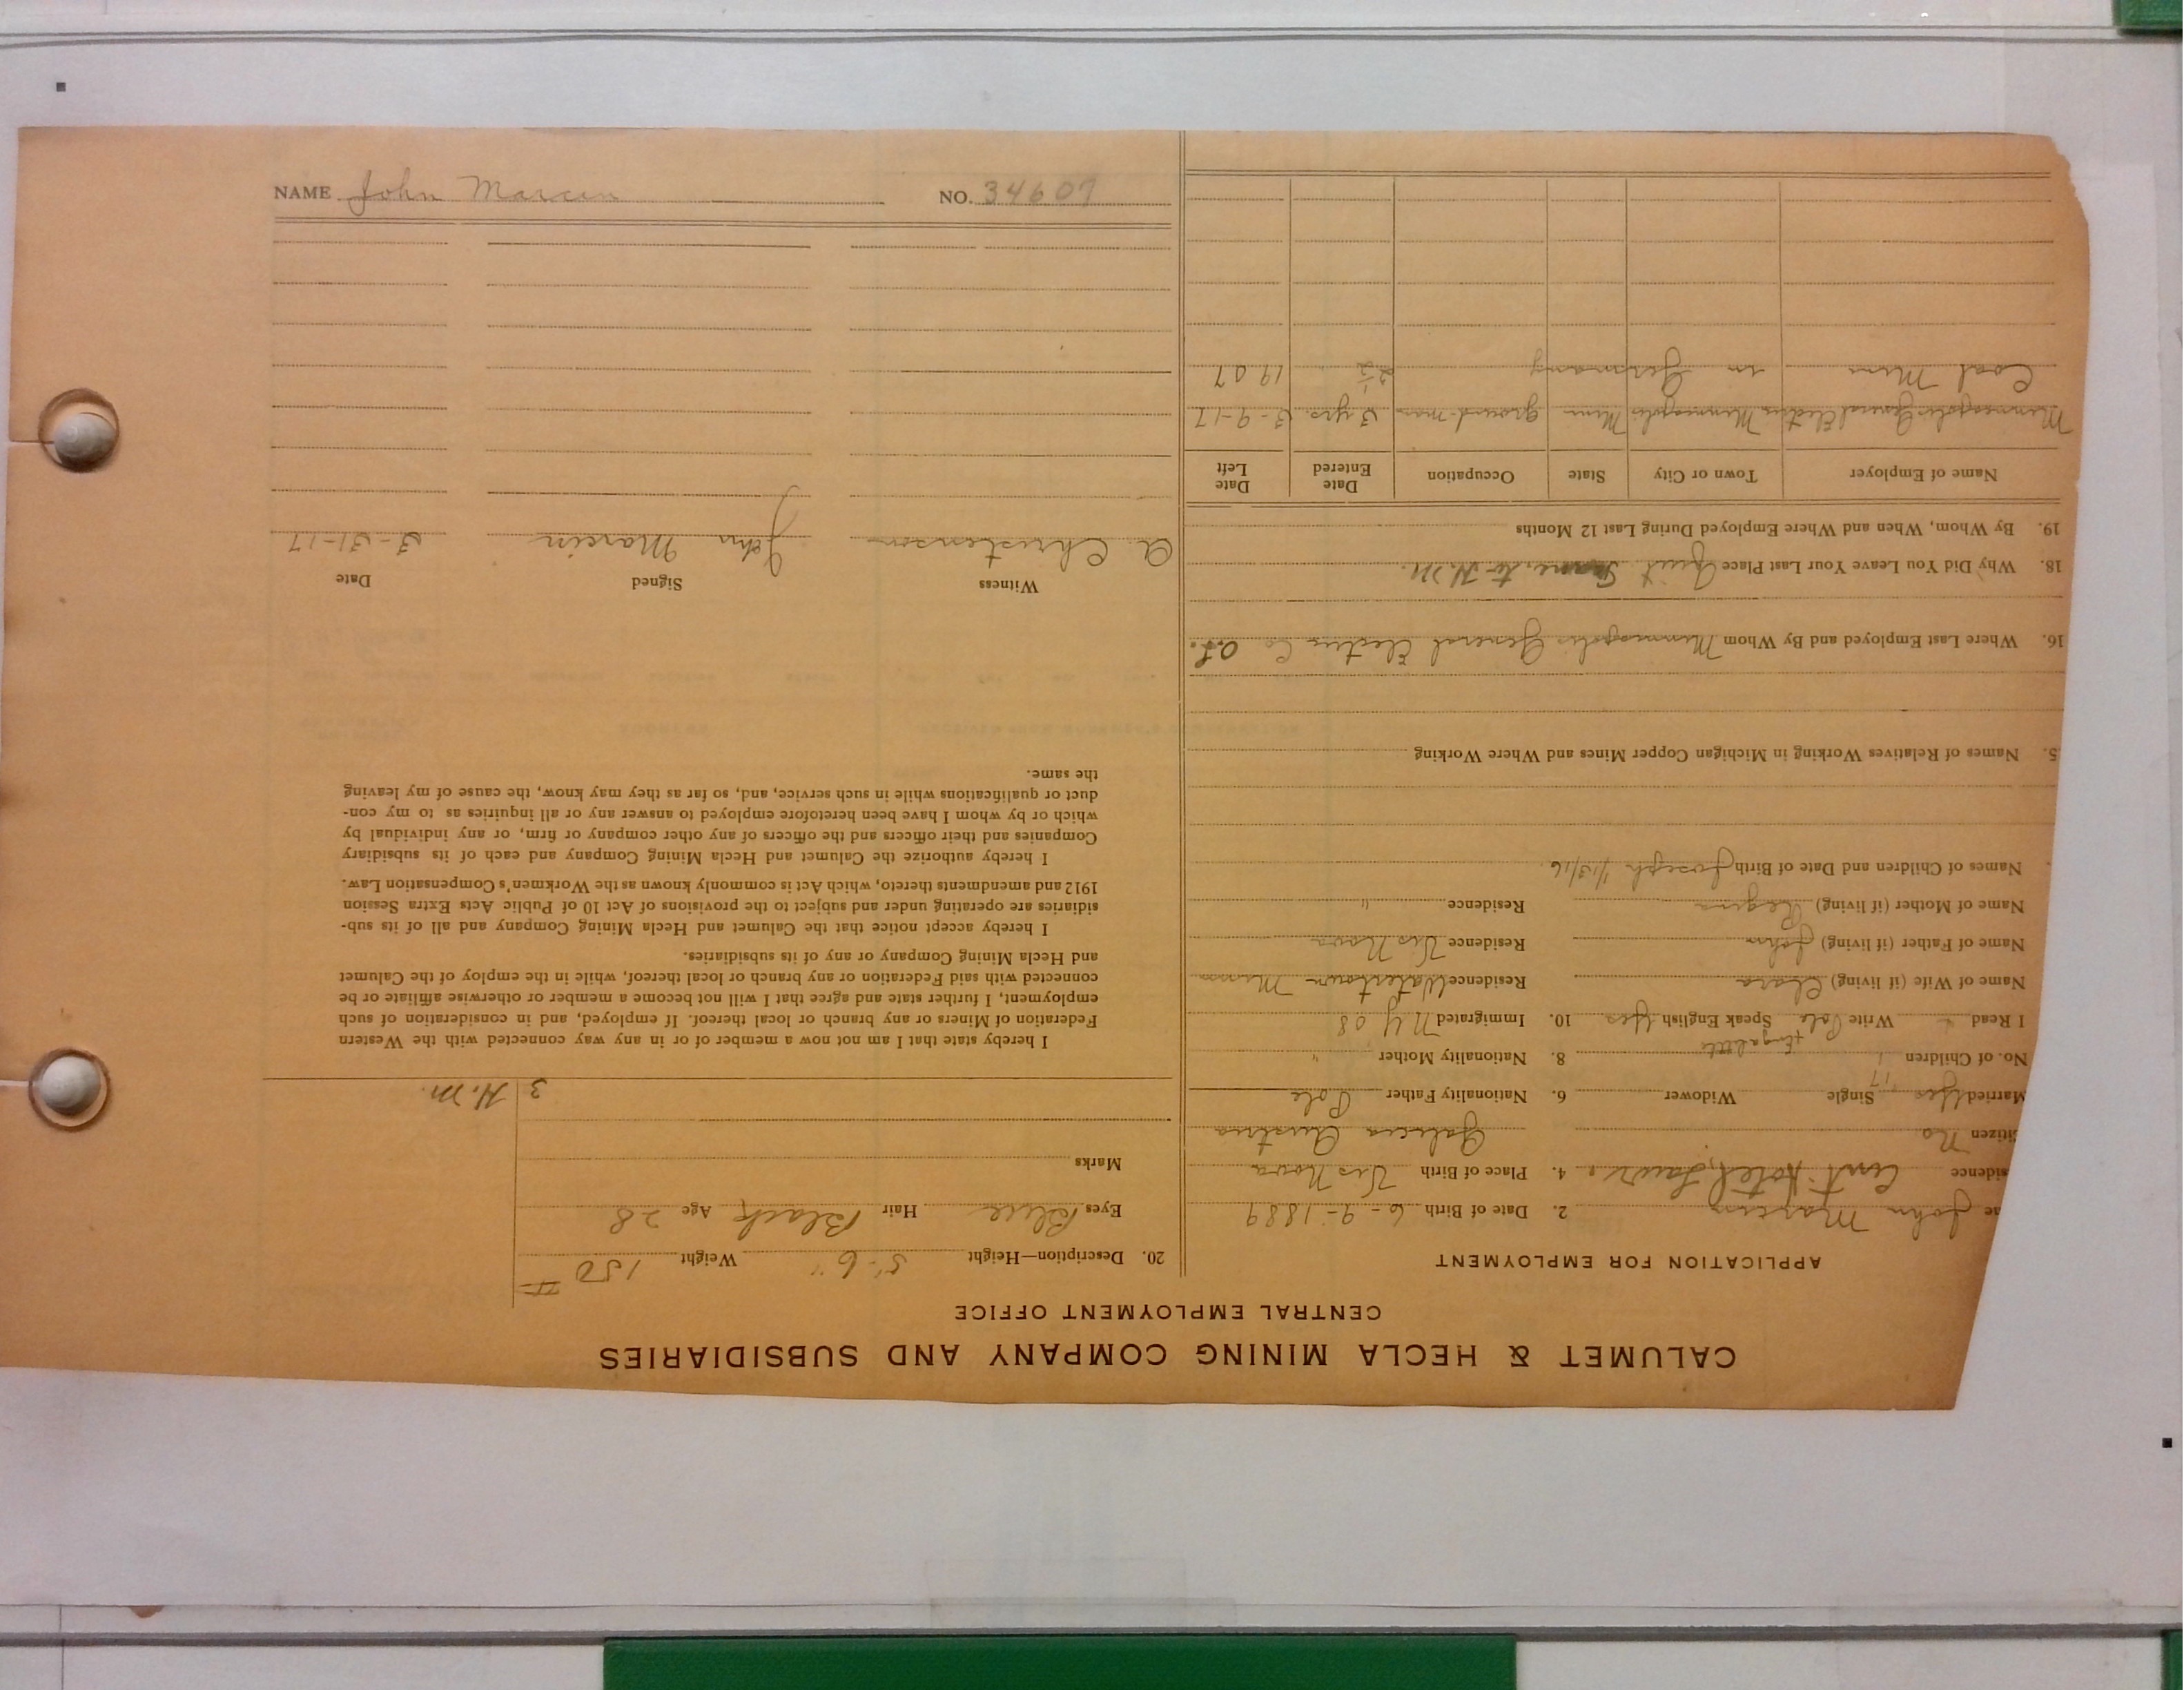 CALUMET & HECLA MINING COMPANY AND SUBSIDIARIES
CENTRAL EMPLOYMENT OFFICE
APPLICATION FOR EMPLOYMENT
me John Marcin 2. Date of Birth 6-9-1889
sidence Cont. Hotel, 4. Place of Birth
itizen no Galicia Austria
Married Yes Single Widower 6. Nationality Father Pole
No. of Children 1 8. Nationality Mother "
I Read Write Pole Speak English Yes 10. Immigrated N Y 08
Name of Wife (if living) Clara Residence Watertown
Name of Father (if living) John Residence
Name of Mother (if living) Regina Residence "
Names of Children and Date of Birth Joseph 1/13/16
5. Names of Relatives Working in Michigan Copper Mines and Where Working
16. Where Last Employed and By Whom Minneapolis General Electric Co
18. Why Did You Leave Your Last Place Quit to H.M.
19. By Whom, When and Where Employed During Last 12 Months
Name of Employer Town or City State Occupation Date Entered Date Left
Minneapolis General Electric Minneapolis Minn ground man 3 yrs 3-9-17
Coal Mine in Germany 2½ 1907
20. Description—Height 5'-6" Weight 150
Eyes Blue Hair Black Age 28
Marks
3 H.M.
I hereby state that I am not now a member of or in any way connected with the Western
Federation of Miners or any branch or local thereof. If employed, and in consideration of such
employment, I further state and agree that I will not become a member or otherwise affiliate or be
connected with said Federation or any branch or local thereof, while in the employ of the Calumet
and Hecla Mining Company or any of its subsidiaries.
I hereby accept notice that the Calumet and Hecla Mining Company and all of its sub-
sidiaries are operating under and subject to the provisions of Act 10 of Public Acts Extra Session
1912 and amendments thereto, which Act is commonly known as the Workmen's Compensation Law.
I hereby authorize the Calumet and Hecla Mining Company and each of its subsidiary
Companies and their officers and the officers of any other company or firm, or any individual by
which or by whom I have been heretofore employed to answer any or all inquiries as to my con-
duct or qualifications while in such service, and, so far as they may know, the cause of my leaving
the same.
Witness Signed Date
A. Christenson John Marcin 3-31-17
NAME John Marcin NO. 34607